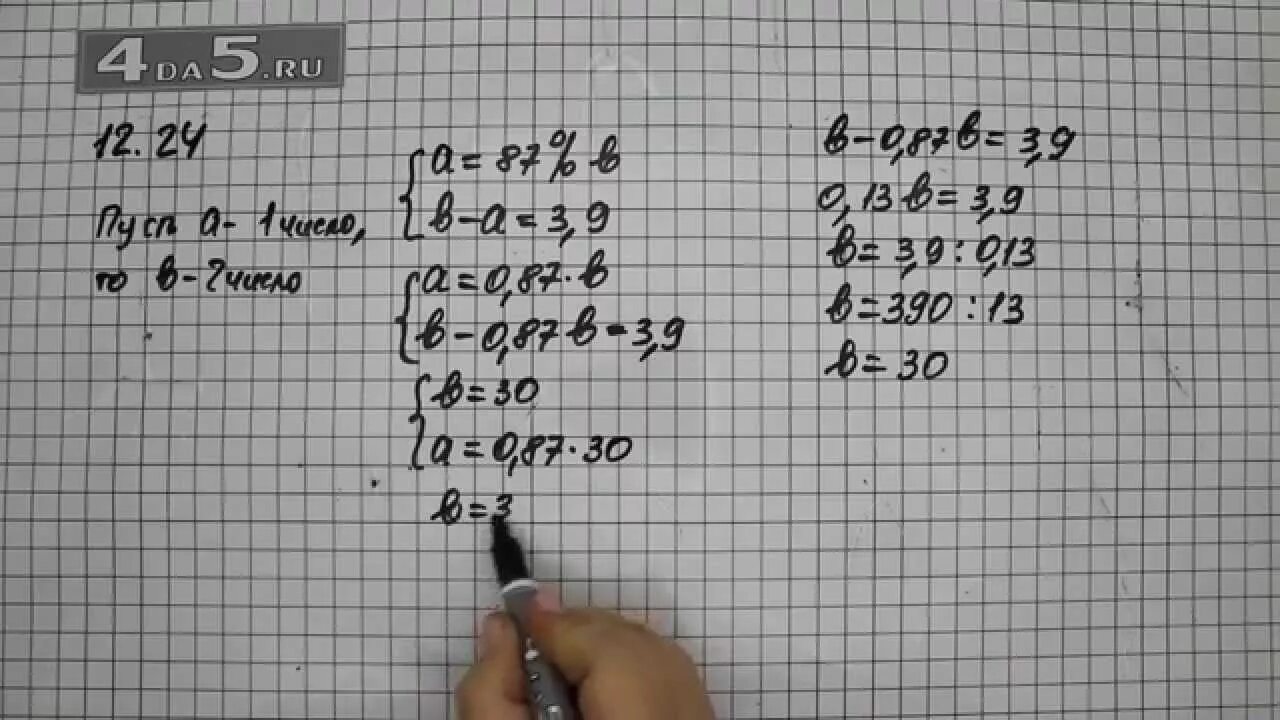 4DA5.RU
12.24
Пусть a- 1 число,
то b-2 число
a = 87% b
b-a = 3,9
a=0,87·b
b-0,87b=3,9
b=30
a=0,87·30
b=3
b-0,87b=3,9
0,13b=3,9
b=3,9:0,13
b=390:13
b=30